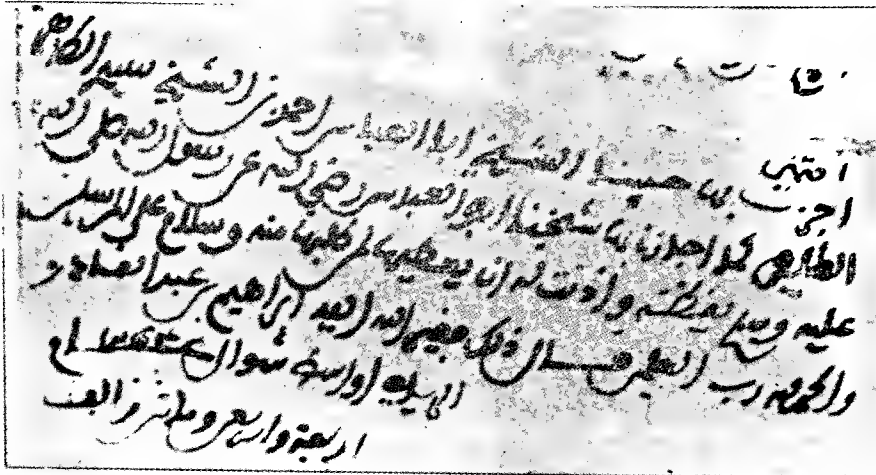 انتهى
اجزت بها حبيبنا الشيخ ابا العباس احمد بن الشيخ سيدي الطاهر
الطاهر كما اجازنا بها شيخنا ابو العباس رضي الله عن رسول الله صلى الله
عليه وسلم يقظة واذنت له ان يعطيها لمن طلبها منه وسلام على المرسلين
والحمد لله رب العلمين قال ذلك فقير الله العبد ابراهيم بن عبد القادر
الرياحي اواسط شوال عام
اربعة واربعين ومائتين والف